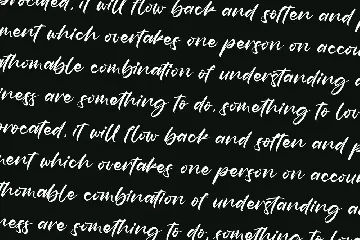 procated, it will flow back and soften and p
ment which overtakes one person on accou
athomable combination of understanding a
iness are something to do, something to lov
procated, it will flow back and soften and p
ment which overtakes one person on accoun
thomable combination of understanding a
ness are something to do, something to lo